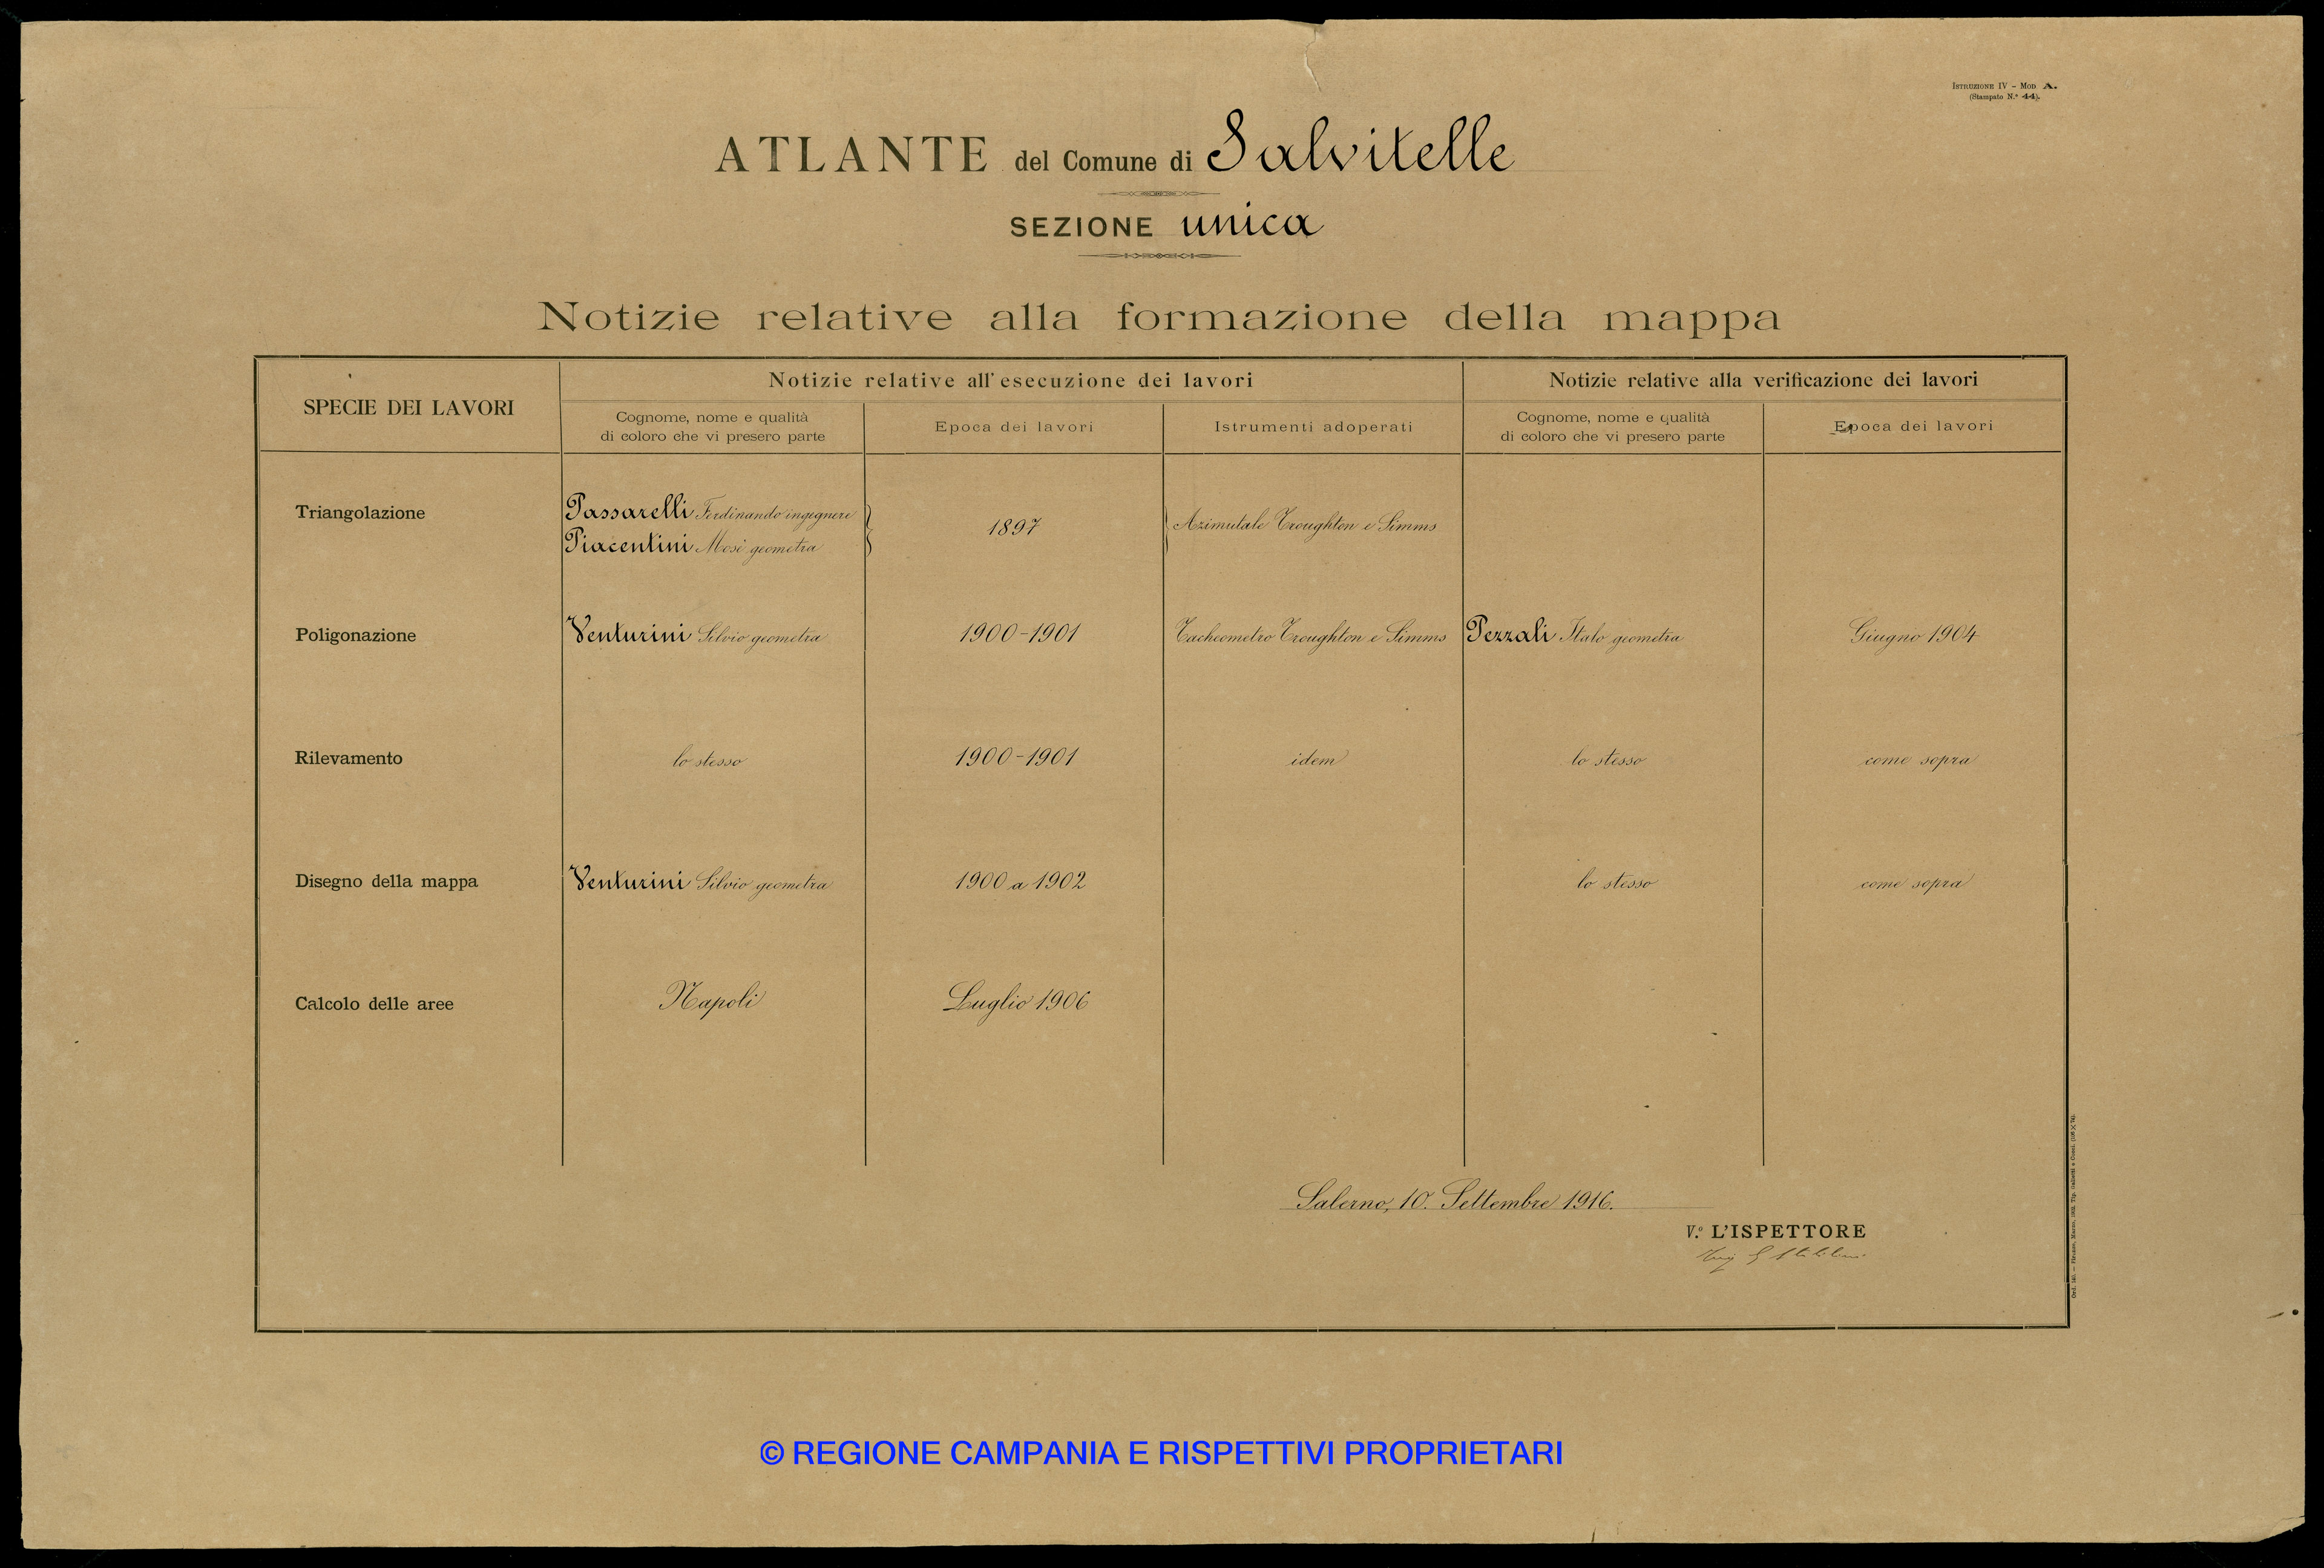 ISTRUZIONE IV - MOD A.
(Stampato N.º 44).
ATLANTE del Comune di Salvitelle
SEZIONE unica
Notizie relative alla formazione della mappa
SPECIE DEI LAVORI
Notizie relative all'esecuzione dei lavori
Notizie relative alla verificazione dei lavori
Cognome, nome e qualità
di coloro che vi presero parte
Epoca dei lavori
Istrumenti adoperati
Cognome, nome e qualità
di coloro che vi presero parte
Epoca dei lavori
Triangolazione
Passarelli Ferdinando ingegnere
Piacentini Mosè geometra
1897
Azimutale Troughton e Simms
Poligonazione
Venturini Silvio geometra
1900-1901
Tacheometro Troughton e Simms
Pezzali Italo geometra
Giugno 1904
Rilevamento
lo stesso
1900-1901
idem
lo stesso
come sopra
Disegno della mappa
Venturini Silvio geometra
1900 a 1902
lo stesso
come sopra
Calcolo delle aree
Napoli
Luglio 1906
Salerno, 10. Settembre 1916.
V.º L'ISPETTORE
© REGIONE CAMPANIA E RISPETTIVI PROPRIETARI